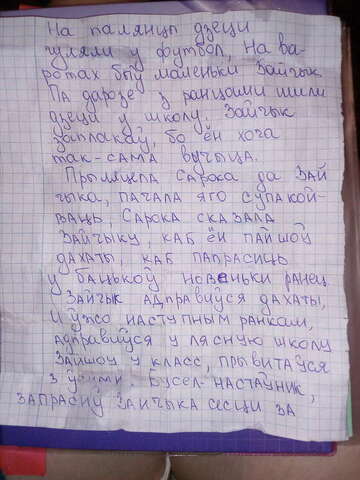 На палянцы дзеци
гуляли у футбол, На ва-
ротах быў маленьки Зайчык
Па дарозе з ранцами ишли
дзеци у школу. Зайчык
заплакаў, бо ён хоча
так-сама вучыца.
Прыляцела Сарока да Зай
чыка, пачала яго супакой-
ваць, Сарока сказала
Зайчыку, каб ён пайшоў
дахаты, каб папрасиць
у бацькоў новеньки ранец.
Зайчык адправиўся дахаты,
И ўжо наступным ранкам,
адправиўся у лясную школу
Зайшоў у класс, прывитаўся
з Бусел-настаўник,
запрасиў Зайчыка сесци за